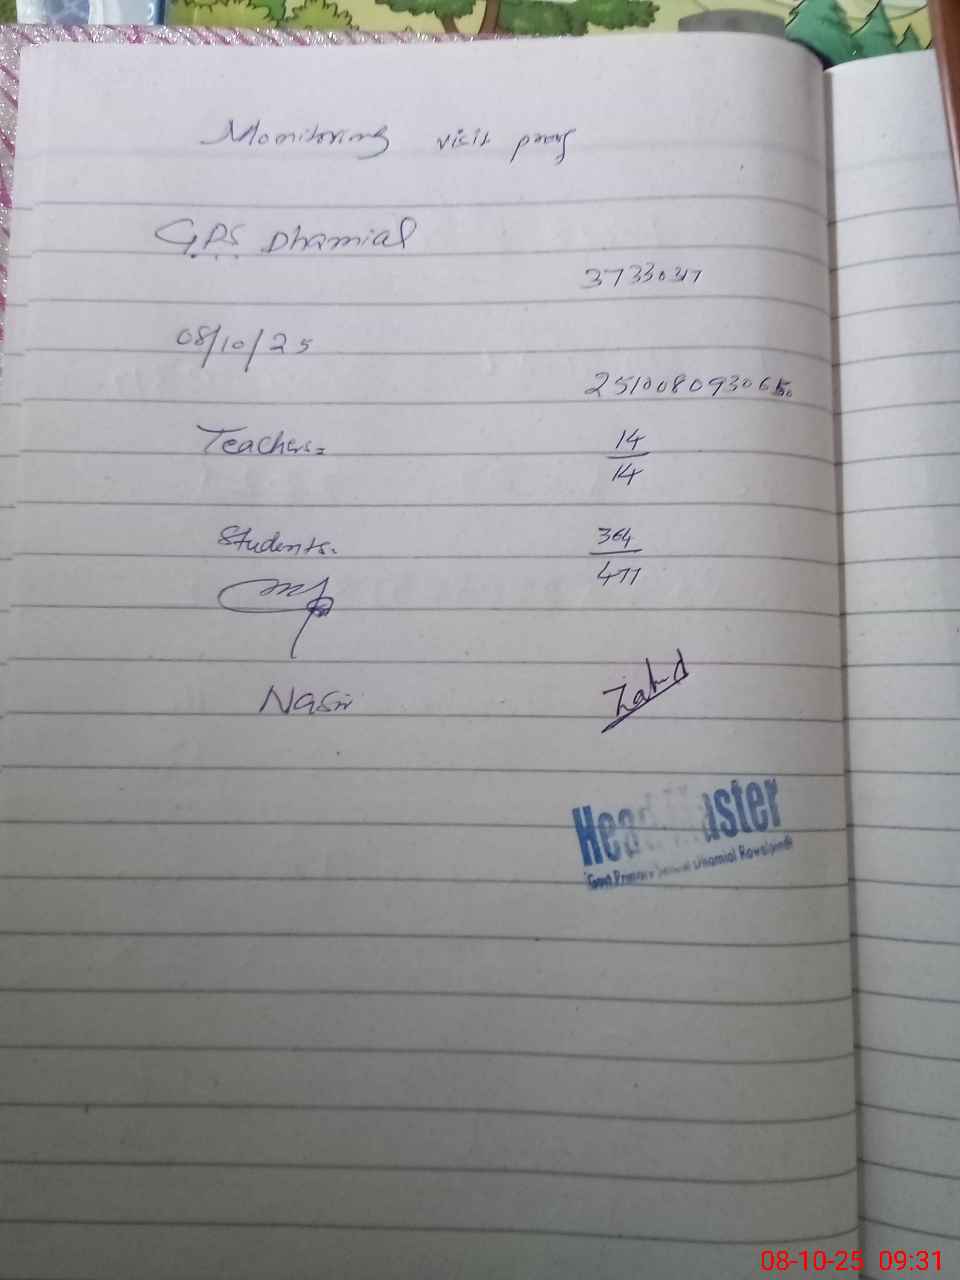 Monitoring visit proof
G.P.S Dhamial
37330317
08/10/25
Teachers= 14/14
Students. 364/477
Nasir
Zahid
Head Master
Govt Primary School Dhamial Rawalpindi
08-10-25 09:31